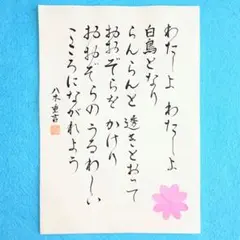 わたしよ わたしよ
白鳥となり
らんらんと 透きとおって
おおぞらを かけり
おおぞらの うるわしい
こころにながれよう
八木重吉